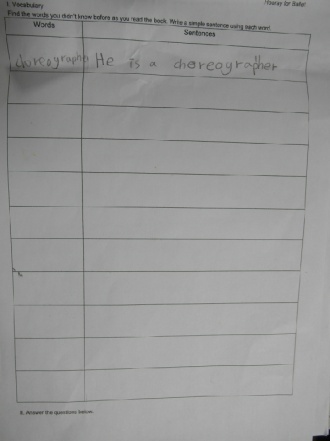 I. Vocabulary
Hooray for Ballet
Find the words you didn't know before as you read the book. Write a simple sentence using each word.
Words
Sentences
choreographer He is a choreographer
II. Answer the questions below.